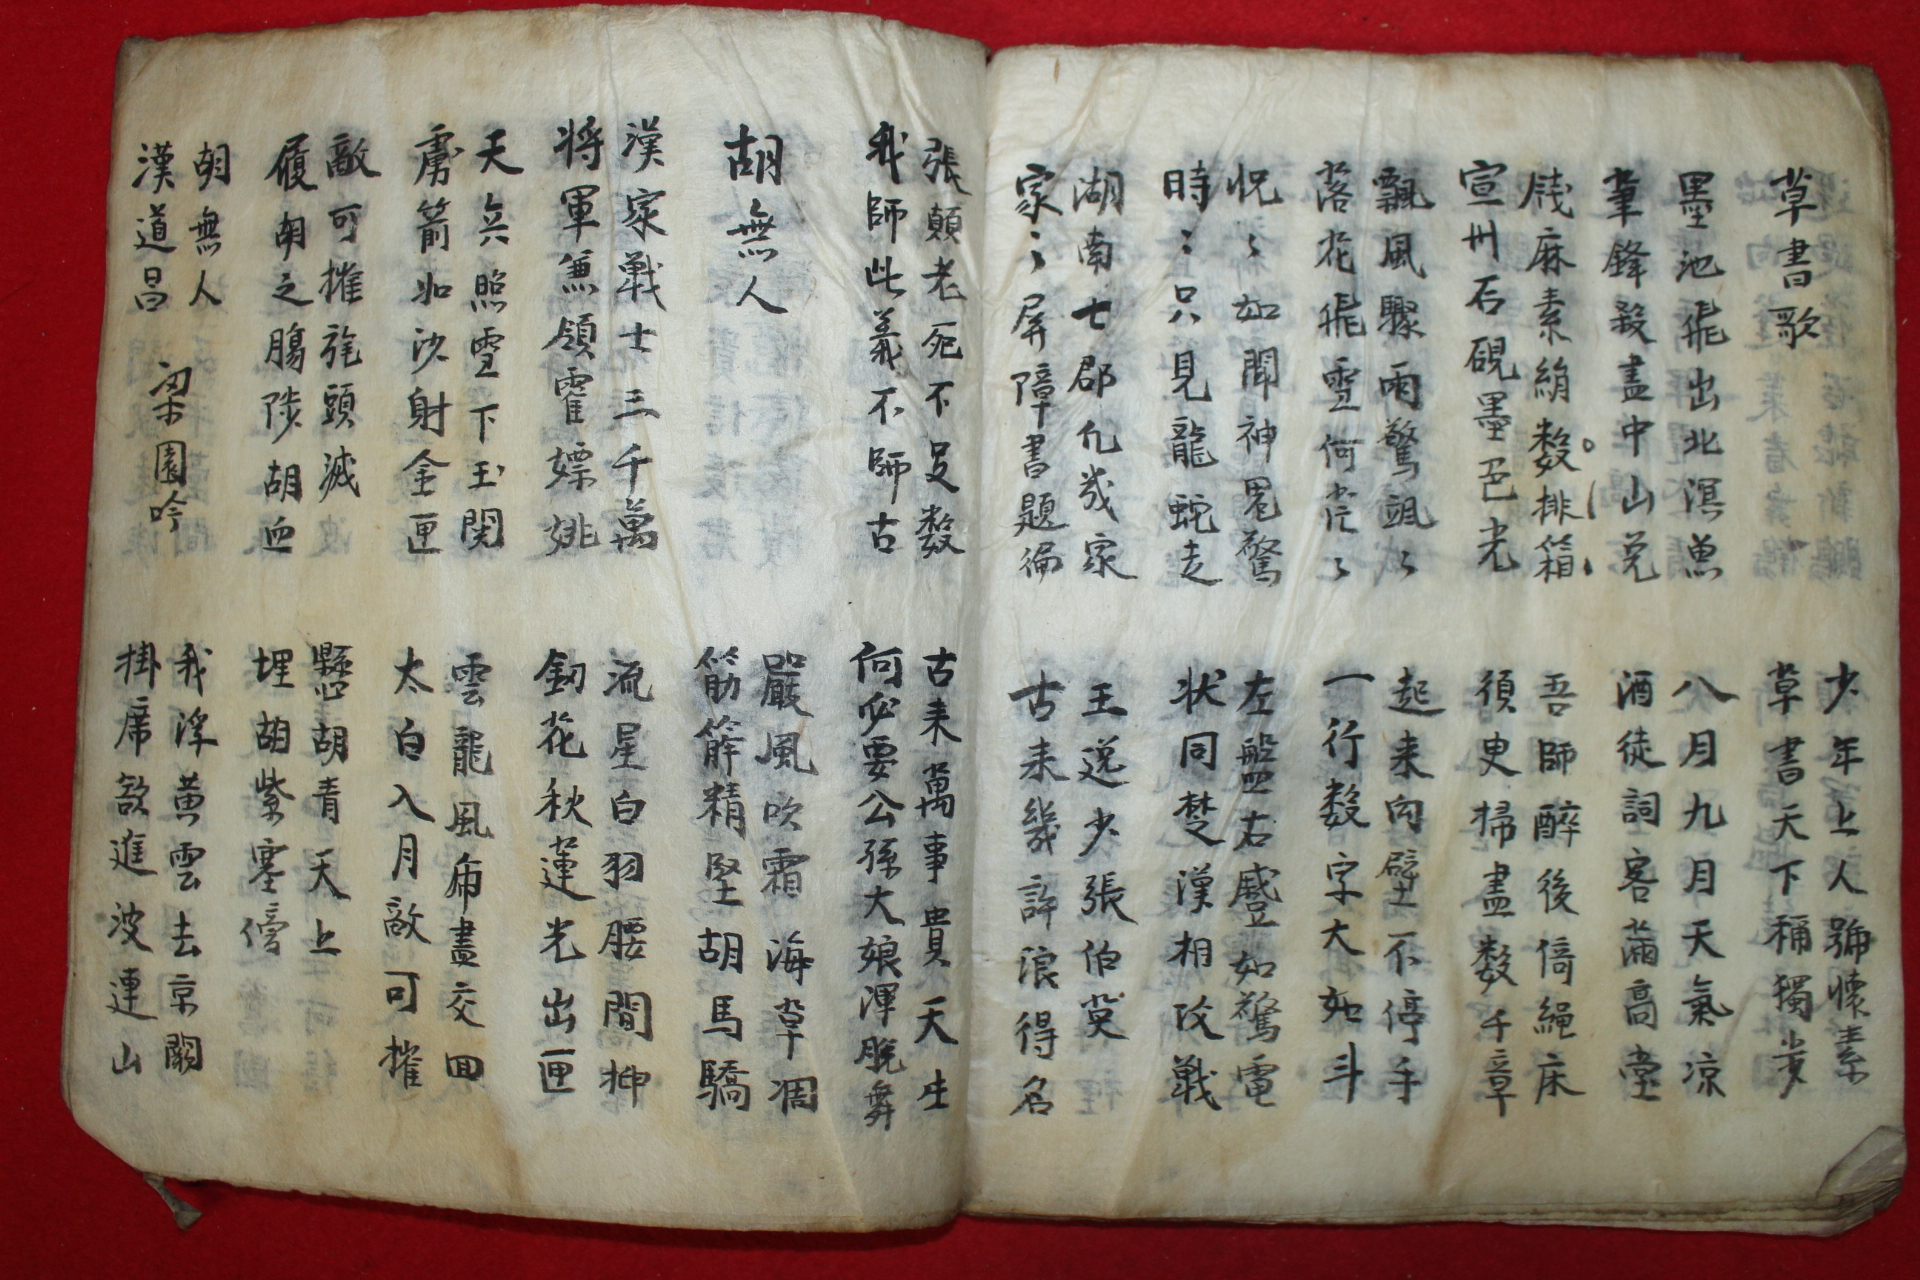 草書歌
少年上人號懷素
草書天下稱獨步
墨池飛出北溟魚
筆鋒殺盡中山兔
八月九月天氣凉
酒徒詞客滿高堂
牋麻素絹数排箱
宣州石硯墨色光
吾師醉後倚繩床
須臾掃盡数千章
飄風驟雨驚颯〻
落花飛雪何茫〻
起来向壁不停手
一行数字大如斗
怳〻如聞神鬼驚
時〻只見龍蛇走
左盤右蹙如驚電
状同楚漢相攻戰
湖南七郡凡幾家
家〻屏障書題徧
王逸少張伯英
古来幾許浪得名
張顛老死不足数
我師此義不師古
古来萬事貴天生
何必要公孫大娘渾脫舞
胡無人
嚴風吹霜海草凋
筋簳精堅胡馬驕
漢家戰士三千萬
將軍兼領霍嫖姚
流星白羽腰間押
釼花秋蓮光出匣
天兵照雪下玉関
虜箭如沙射金匣
雲龍風布盡交回
太白入月敵可摧
敵可摧旄頭滅
履胡之膓陟胡血
懸胡青天上
埋胡紫塞傍
胡無人
漢道昌
梁園吟
我浮黄雲去京闕
掛席欲進波連山